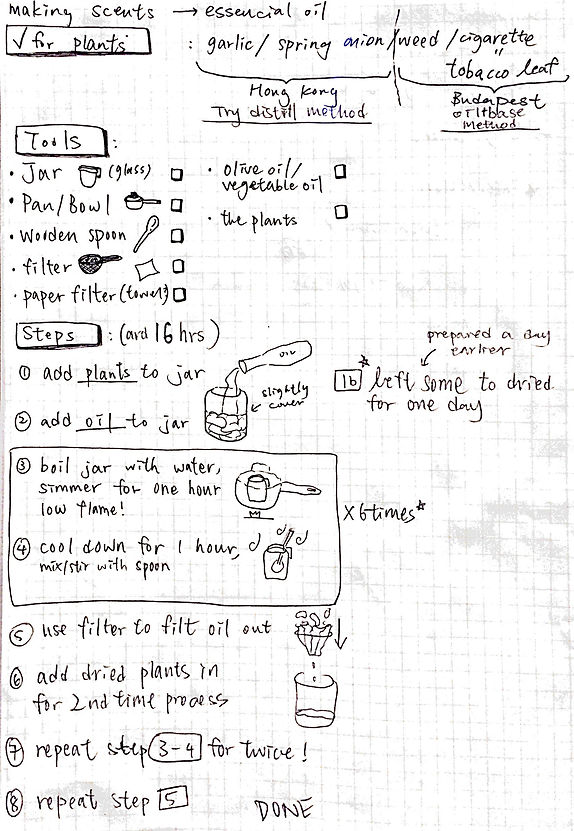 making scents → essencial oil
√ for plants : garlic / spring onion / weed / cigarette
"
tobacco leaf
Hong Kong
Try distill method
Budapest
oiltbase
Method
Tools :
· Jar (glass)
· Pan/Bowl
· wooden spoon
· filter
· paper filter (towel)
· olive oil/
vegetable oil
· the plants
Steps : (ard 16 hrs)
① add plants to jar
OIL
slightly
cover
② add oil to jar
prepared a day
earlier
1b left some to dried
for one day
③ boil jar with water,
simmer for one hour
low flame!
④ cool down for 1 hour,
mix/stir with spoon
x 6 times
⑤ use filter to filt oil out
⑥ add dried plants in
for 2nd time process
⑦ repeat step 3-4 for twice!
⑧ repeat step 5
DONE